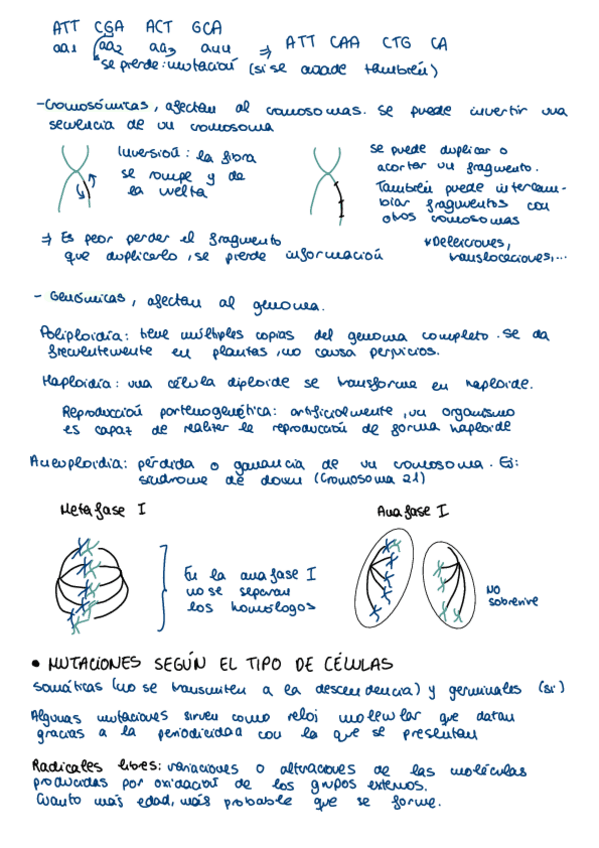 ATT CGA ACT GCA
aa1 aa2 aa3 aa4 ⇒ ATT CAA CTG CA
se pierde: mutación (si se añade también)
- Cromosómicas, afectan al cromosomas. Se puede invertir una
secuencia de un cromosoma
Inversión: la fibra
se rompe y da
la vuelta
se puede duplicar o
acortar un fragmento.
También puede intercam-
biar fragmentos con
otros cromosomas
⇒ Es peor perder el fragmento
que duplicarlo, se pierde información
Delecciones,
translocaciones,...
- Genómicas, afectan al genoma.
Poliploidía: tiene múltiples copias del genoma completo. Se da
frecuentemente en plantas, no causa perjuicios.
Haploidía: una célula diploide se transforma en haploide.
Reproducción partenogenética: artificialmente, un organismo
es capaz de realizar la reproducción de forma haploide
Aneuploidía: pérdida o ganancia de un cromosoma. Ej:
síndrome de down (Cromosoma 21)
Metafase I
Anafase I
En la anafase I
no se separan
los homólogos
NO
sobrevive
• MUTACIONES SEGÚN EL TIPO DE CÉLULAS
Somáticas (no se transmiten a la descendencia) y germinales (sí)
Algunas mutaciones sirven como reloj molecular que datan
gracias a la periodicidad con la que se presentan
Radicales libres: variaciones o alteraciones de las moléculas
producidas por oxidación de los grupos externos.
Cuanto más edad, más probable que se forme.